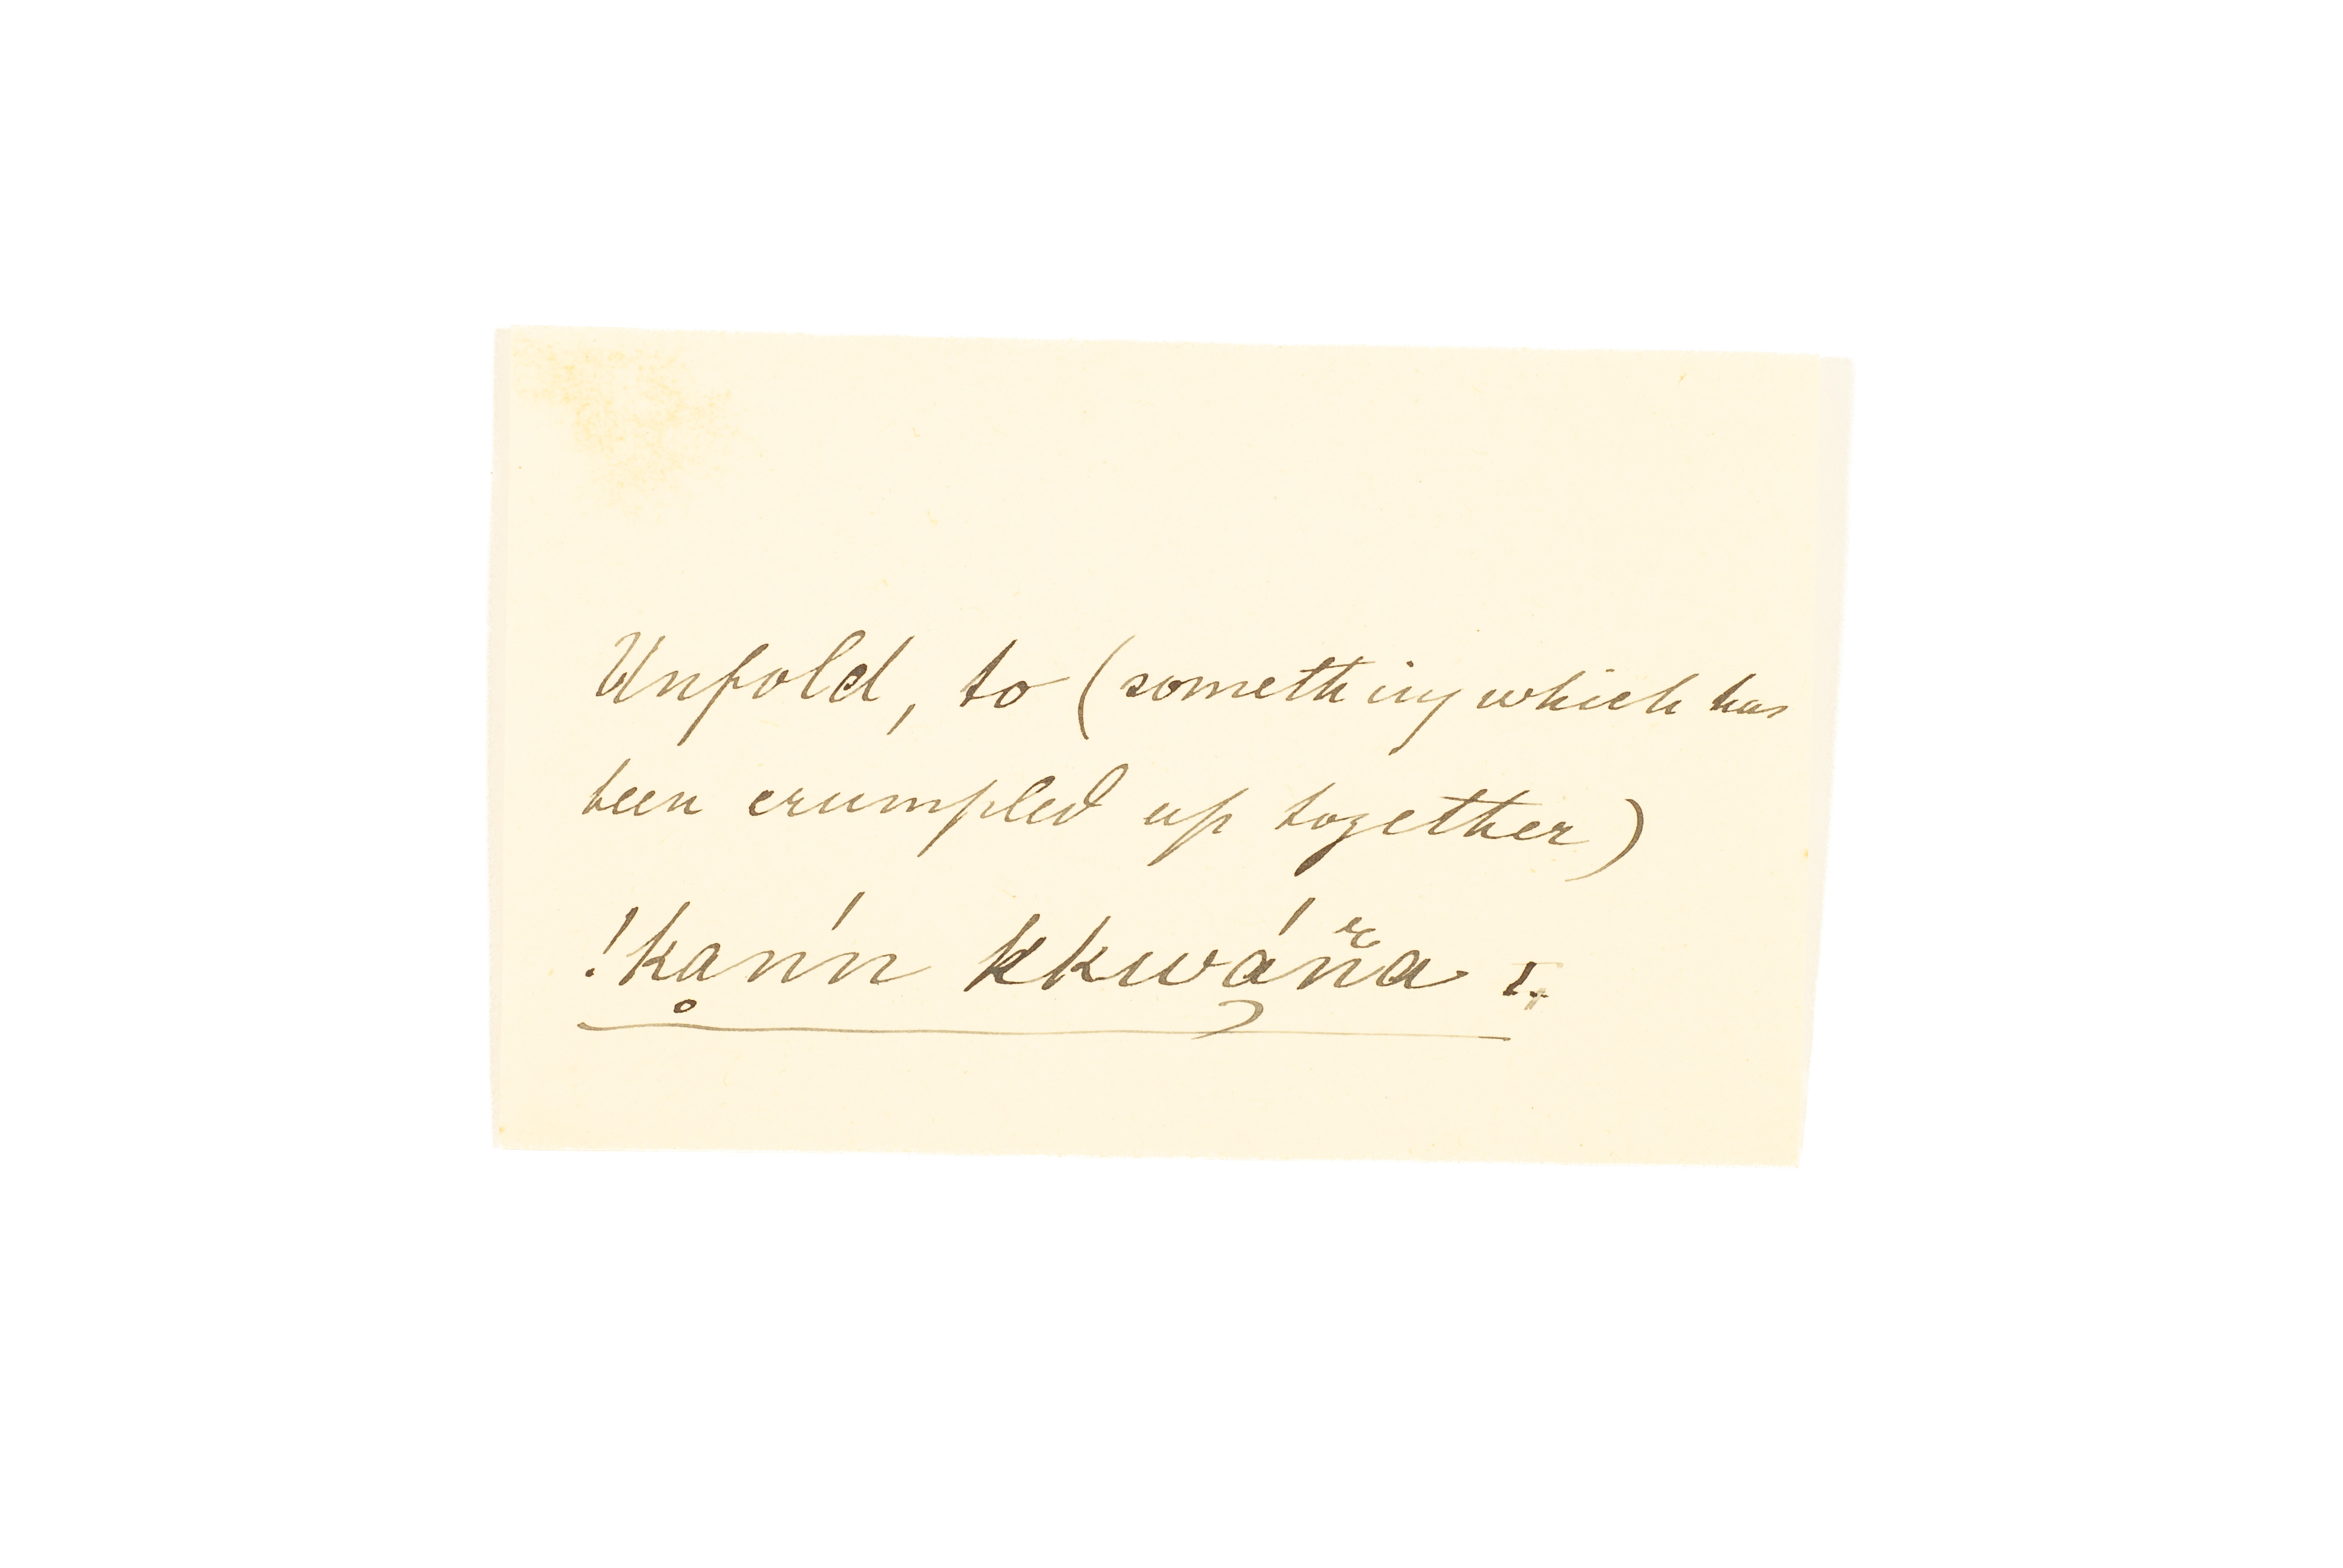 Unfold, to (something which has
been crumpled up together)
!kḁnń kkwán̆a I.